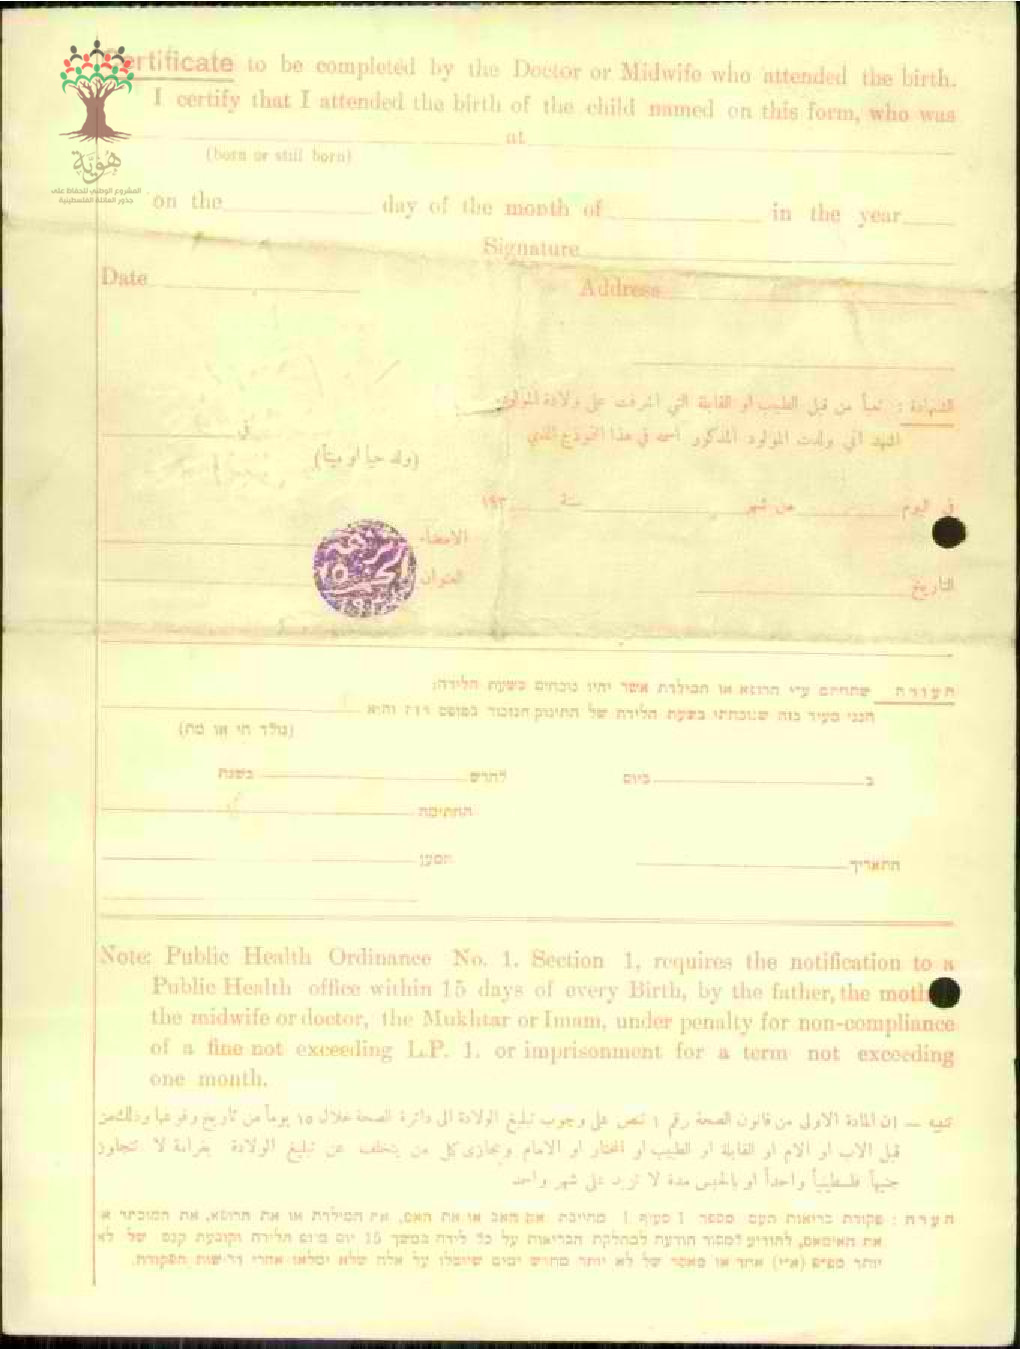 Certificate to be completed by the Doctor or Midwife who attended the birth.
I certify that I attended the birth of the child named on this form, who was
at
(born or still born)
هُوِيَّة
المشروع الوطني للحفاظ على
جذور العائلة الفلسطينية
on the day of the month of in the year
Signature
Date Address
الشهادة : تعبأ من قبل الطبيب او القابلة التي اشرفت على ولادة المولود.
اشهد اني ولدت المولود المذكور اسمه في هذا النموذج الذي
(ولد حياً او ميتاً) في
في اليوم من شهر سنة ١٩٣
الامضاء
التاريخ العنوان
תעודה שתחתם ע״י הרופא או המילדת אשר יהיו נוכחים בשעת הלידה:
הנני מעיד בזה שנוכחתי בשעת הלידה של התינוק הנזכר בטופס זה והיא
(נולד חי או מת)
ב ביום לחדש בשנת
החתימה
התאריך המען
Note: Public Health Ordinance No. 1. Section 1, requires the notification to a
Public Health office within 15 days of every Birth, by the father, the
the midwife or doctor, the Mukhtar or Imam, under penalty for non-compliance
of a fine not exceeding L.P. 1. or imprisonment for a term not exceeding
one month.
تنبيه — ان المادة الاولى من قانون الصحة رقم ١ تنص على وجوب تبليغ الولادة الى دائرة الصحة خلال ١٥ يوماً من تاريخ وقوعها وذلك من
قبل الاب او الام او القابلة او الطبيب او المختار او الامام ويجازى كل من يتخلف عن تبليغ الولادة بغرامة لا تتجاوز
جنيهاً فلسطينياً واحداً او بالحبس مدة لا تزيد على شهر واحد
הערה : פקודת בריאות העם מספר 1 סעיף 1 מחייבת את האב או את האם, את המילדת או את הרופא, את המוכתר או
את האימאם, להודיע למסור הודעה למחלקת הבריאות על כל לידה במשך 15 יום מיום הלידה וקובעת קנס של לא
יותר מפ״פ (א״י) אחד או מאסר של לא יותר מחדש ימים שיוטלו על אלה שלא ימלאו אחרי דרישות הפקודה.